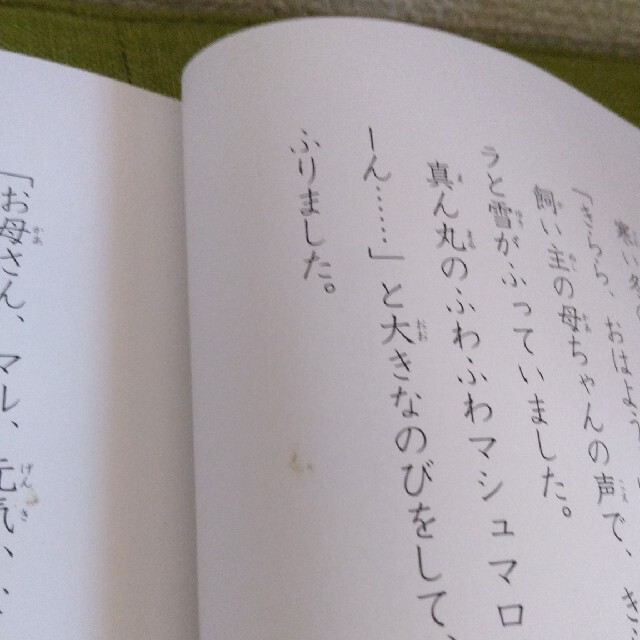 「きらら、おはよう
飼い主の母ちゃんの声で、き
うと雪がふっていました。
真ん丸のふわふわマシュマロ
ーん……」と大きなのびをして、
ふりました。
「お母さん、マレ、元気、、